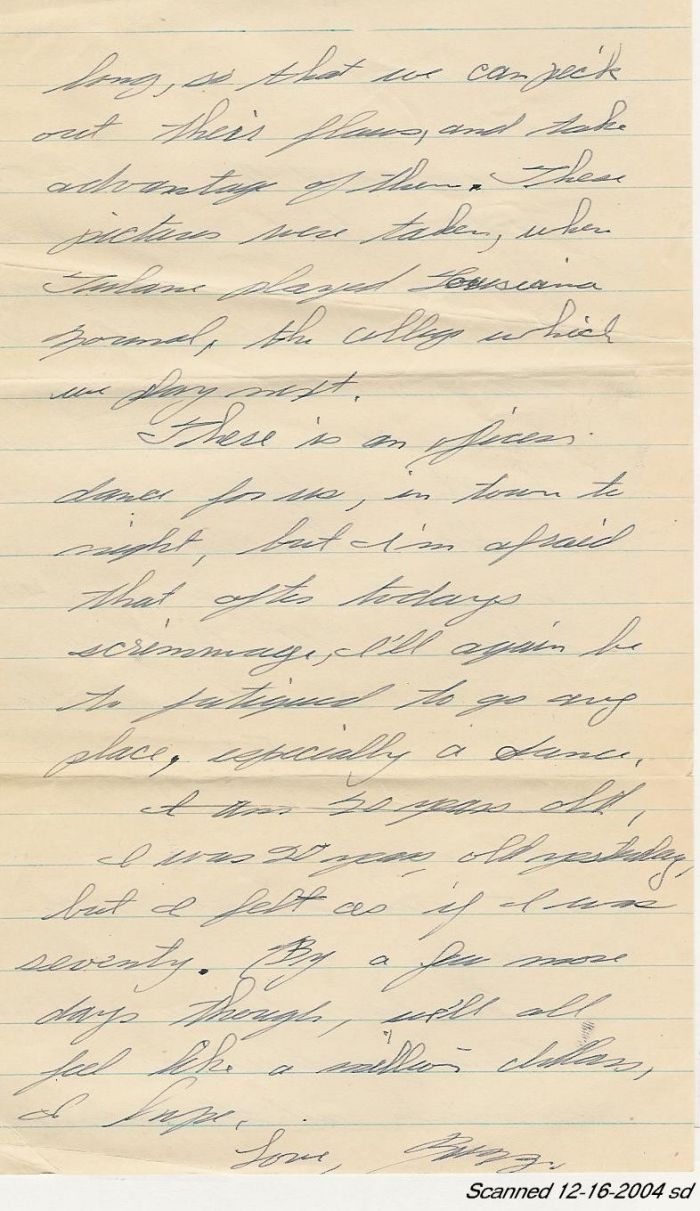 long, so that we can pick
out their flaws, and take
advantage of them. These
pictures were taken, when
Tulane played Louisiana
Normal, the college which
we play next.
There is an officers
dance for us, in town to
night, but I'm afraid
that after todays
scrimmage, I'll again be
to fatigued to go any
place, especially a dance.
I am 20 years old,
I was 20 years old yesterday,
but I felt as if I was
seventy. By a few more
days though, we'll all
feel like a million dollars,
I hope.
Love,
Scanned 12-16-2004 sd